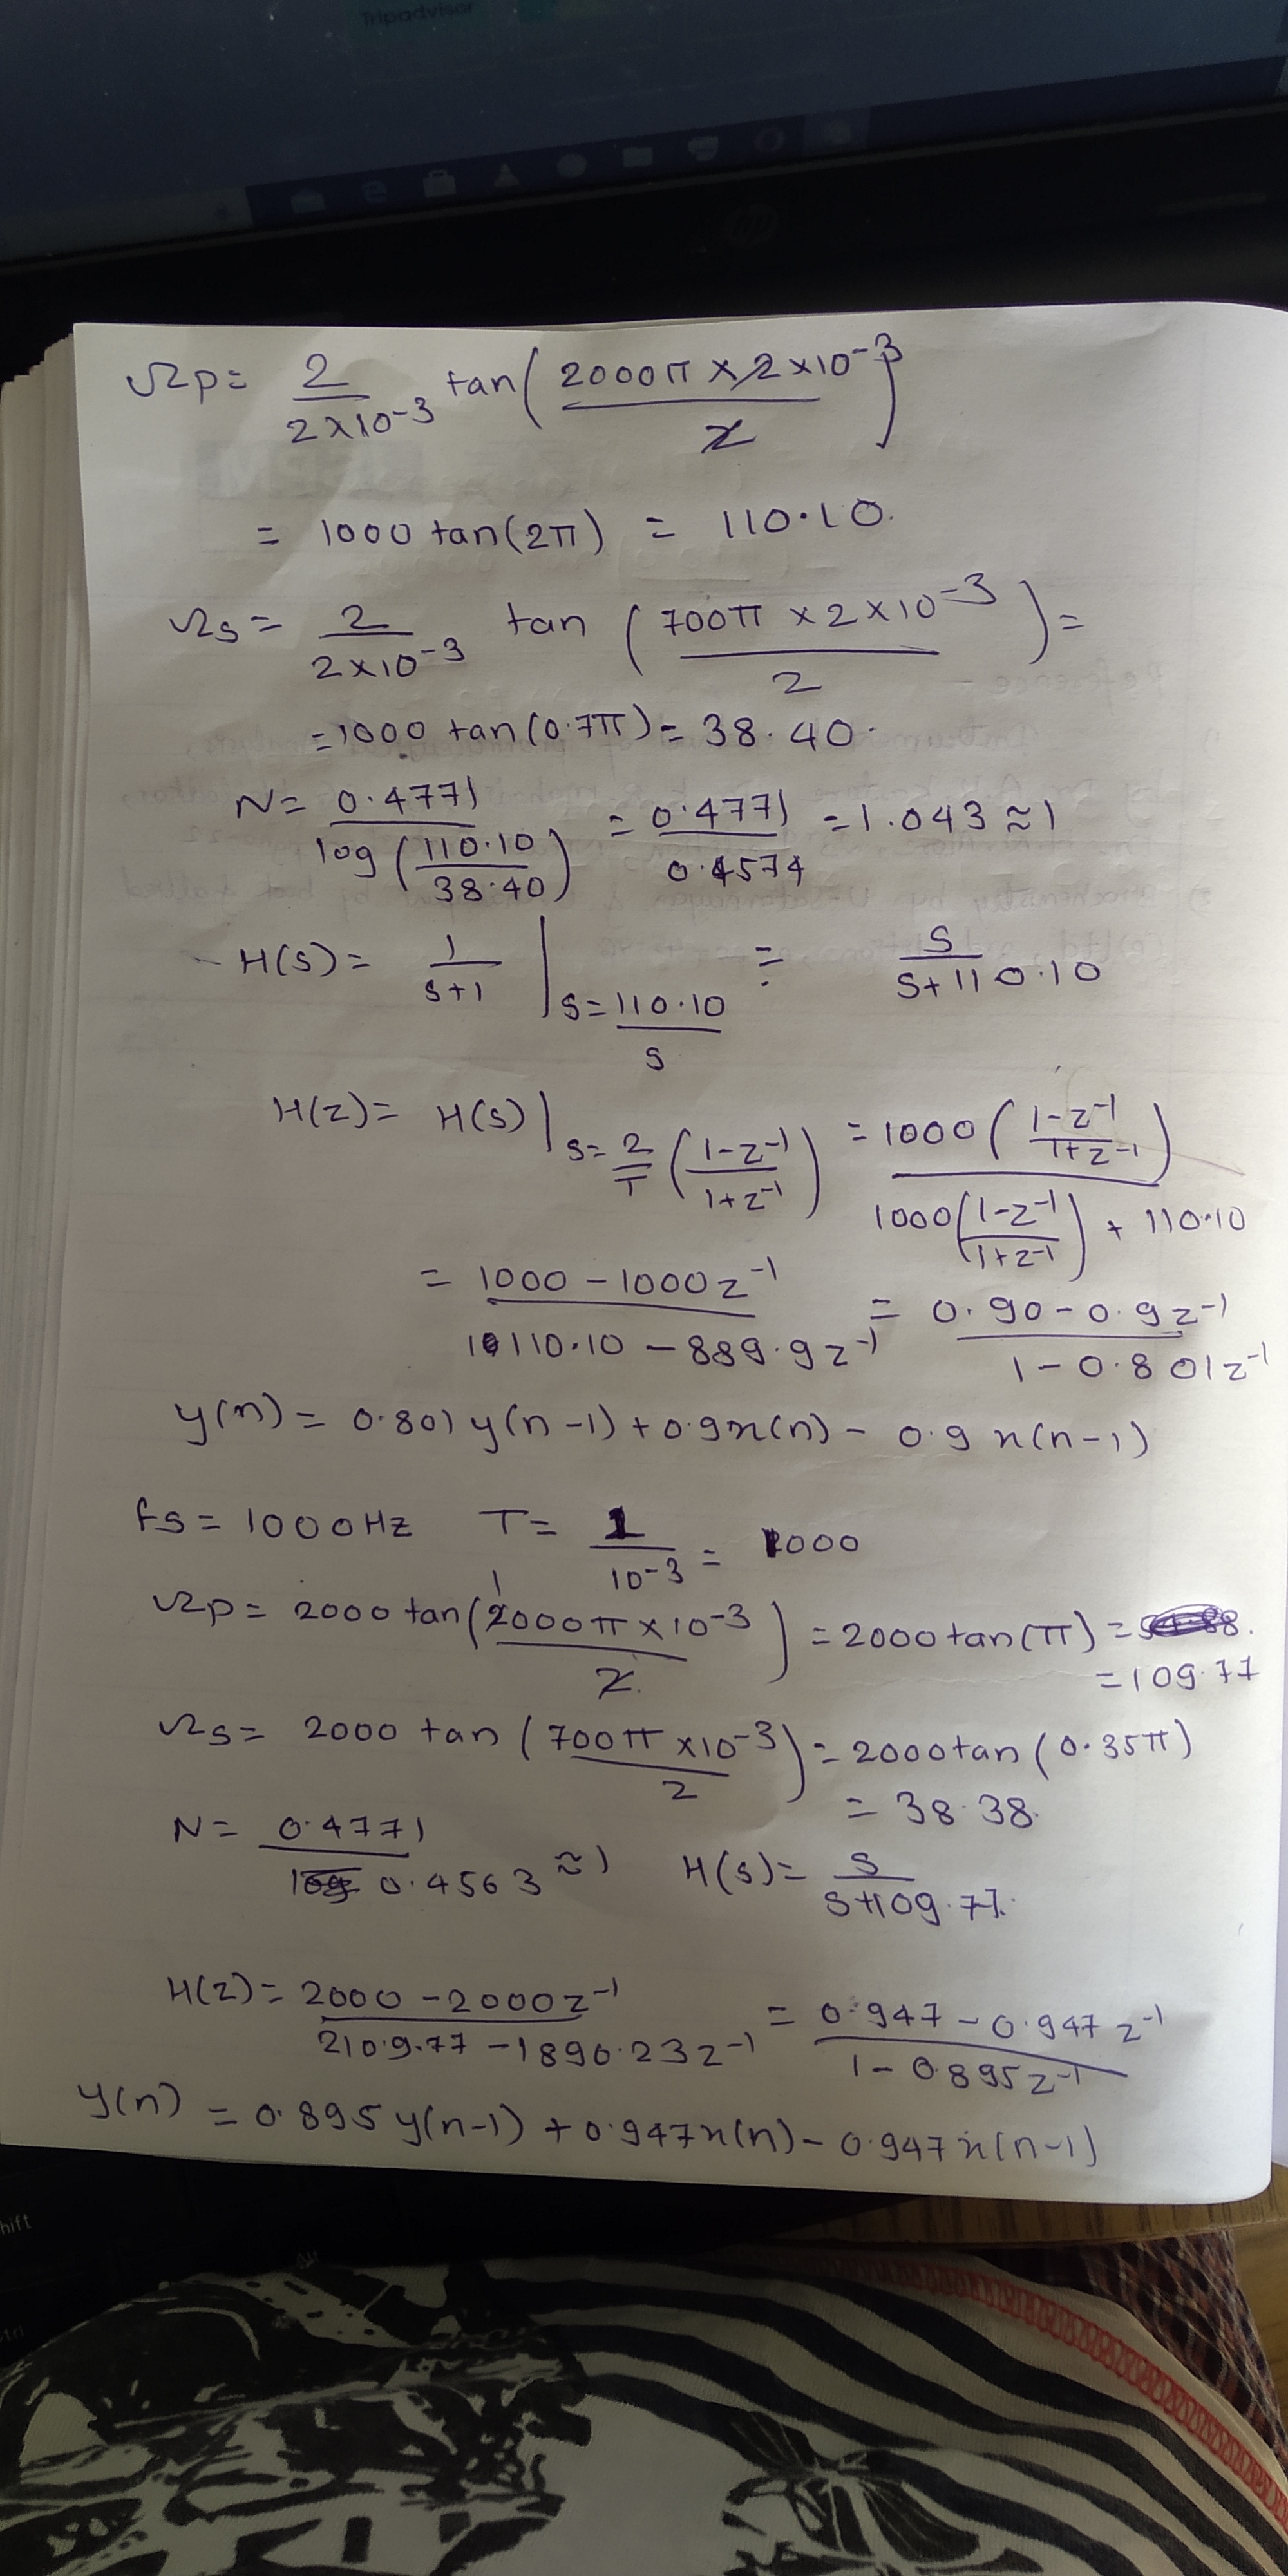 Tripadvisor
hp
Ωp = 2/(2×10^-3) tan(2000π × 2×10^-3 / 2)
= 1000 tan(2π) = 110.10.
Ωs = 2/(2×10^-3) tan(700π × 2×10^-3 / 2) =
= 1000 tan(0.7π) = 38.40.
N = 0.4771/log(110.10/38.40) = 0.4771/0.4574 = 1.043 ≈ 1
- H(s) = 1/(s+1) | s = 110.10/s = s/(s+110.10)
H(z) = H(s) | s = 2/T ((1-z^-1)/(1+z^-1)) = 1000((1-z^-1)/(1+z^-1)) / (1000((1-z^-1)/(1+z^-1)) + 110.10)
= (1000 - 1000z^-1)/(10110.10 - 889.9z^-1) = (0.90 - 0.9z^-1)/(1 - 0.801z^-1)
y(n) = 0.801y(n-1) + 0.9x(n) - 0.9x(n-1)
fs = 1000Hz T = 1/10^-3 = 1000
Ωp = 2000 tan(2000π × 10^-3 / 2) = 2000tan(π) =
= 109.77
Ωs = 2000 tan(700π × 10^-3 / 2) = 2000tan(0.35π)
= 38.38.
N = 0.4771/0.4563 ≈ 1 H(s) = s/(s+109.77.)
H(z) = (2000 - 2000z^-1)/(2109.77 - 1890.23z^-1) = (0.947 - 0.947z^-1)/(1 - 0.895z^-1)
y(n) = 0.895y(n-1) + 0.947x(n) - 0.947x(n-1)
hift